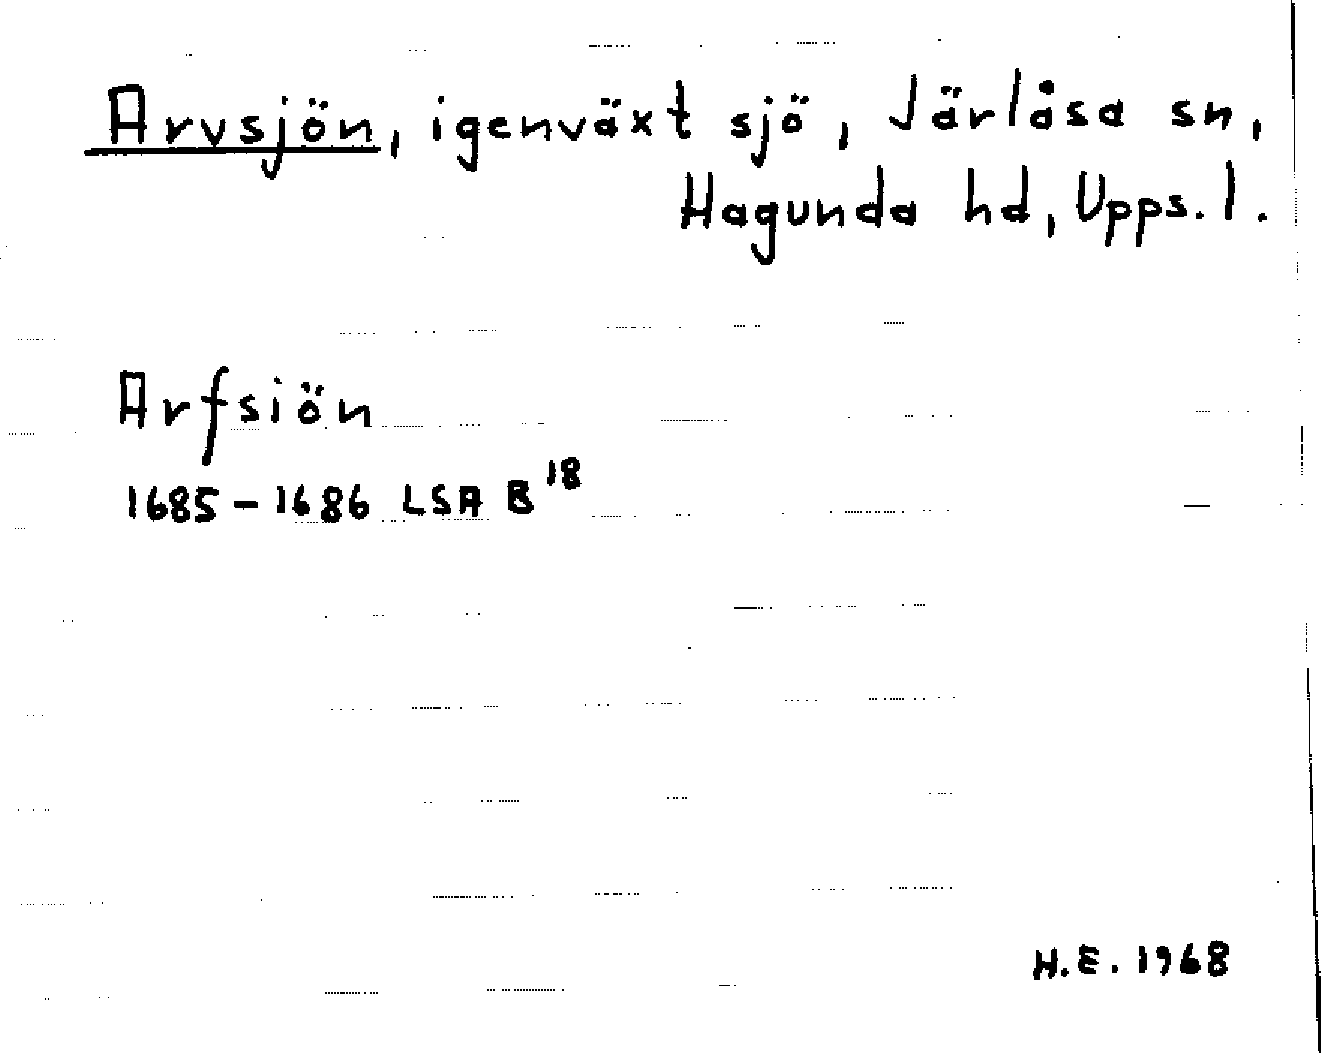 Arvsjön, igenväxt sjö, Järlåsa sn,
Hagunda hd, Upps. l.
Arfsiön
1685-1686 LSA B¹⁸
H.E. 1968